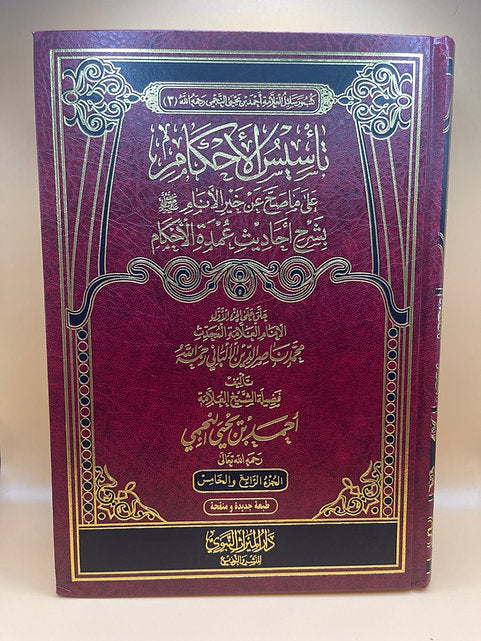 كتب ورسائل العلامة أحمد بن يحيى النجمي رحمه الله (٣)
تأسيس الأحكام
على ما صح عن خير الأنام ﷺ
بشرح أحاديث عمدة الأحكام
علق على الجزء الأول
الإمام العلامة المحدث
محمد ناصر الدين الألباني رحمه الله
تأليف
فضيلة الشيخ العلامة
أحمد بن يحيى النجمي
رحمه الله تعالى
الجزء الرابع والخامس
طبعة جديدة و منقحة
دار الميراث النبوي
للنشر والتوزيع